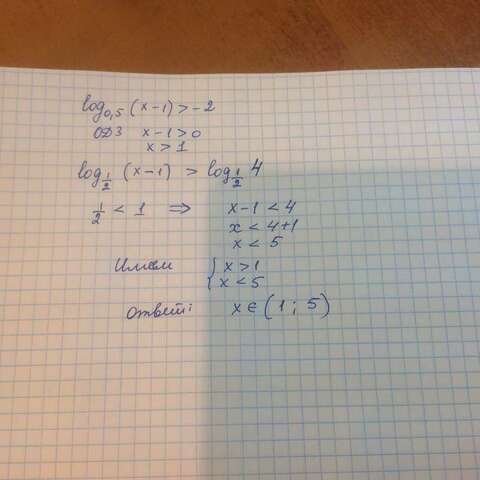 log₀,₅ (x-1) > -2
ОДЗ x-1>0
x>1
log_{1/2} (x-1) > log_{1/2} 4
1/2 < 1 ⇒ x-1<4
x<4+1
x<5
Имеем { x>1
{ x<5
Ответ: x∈(1;5)